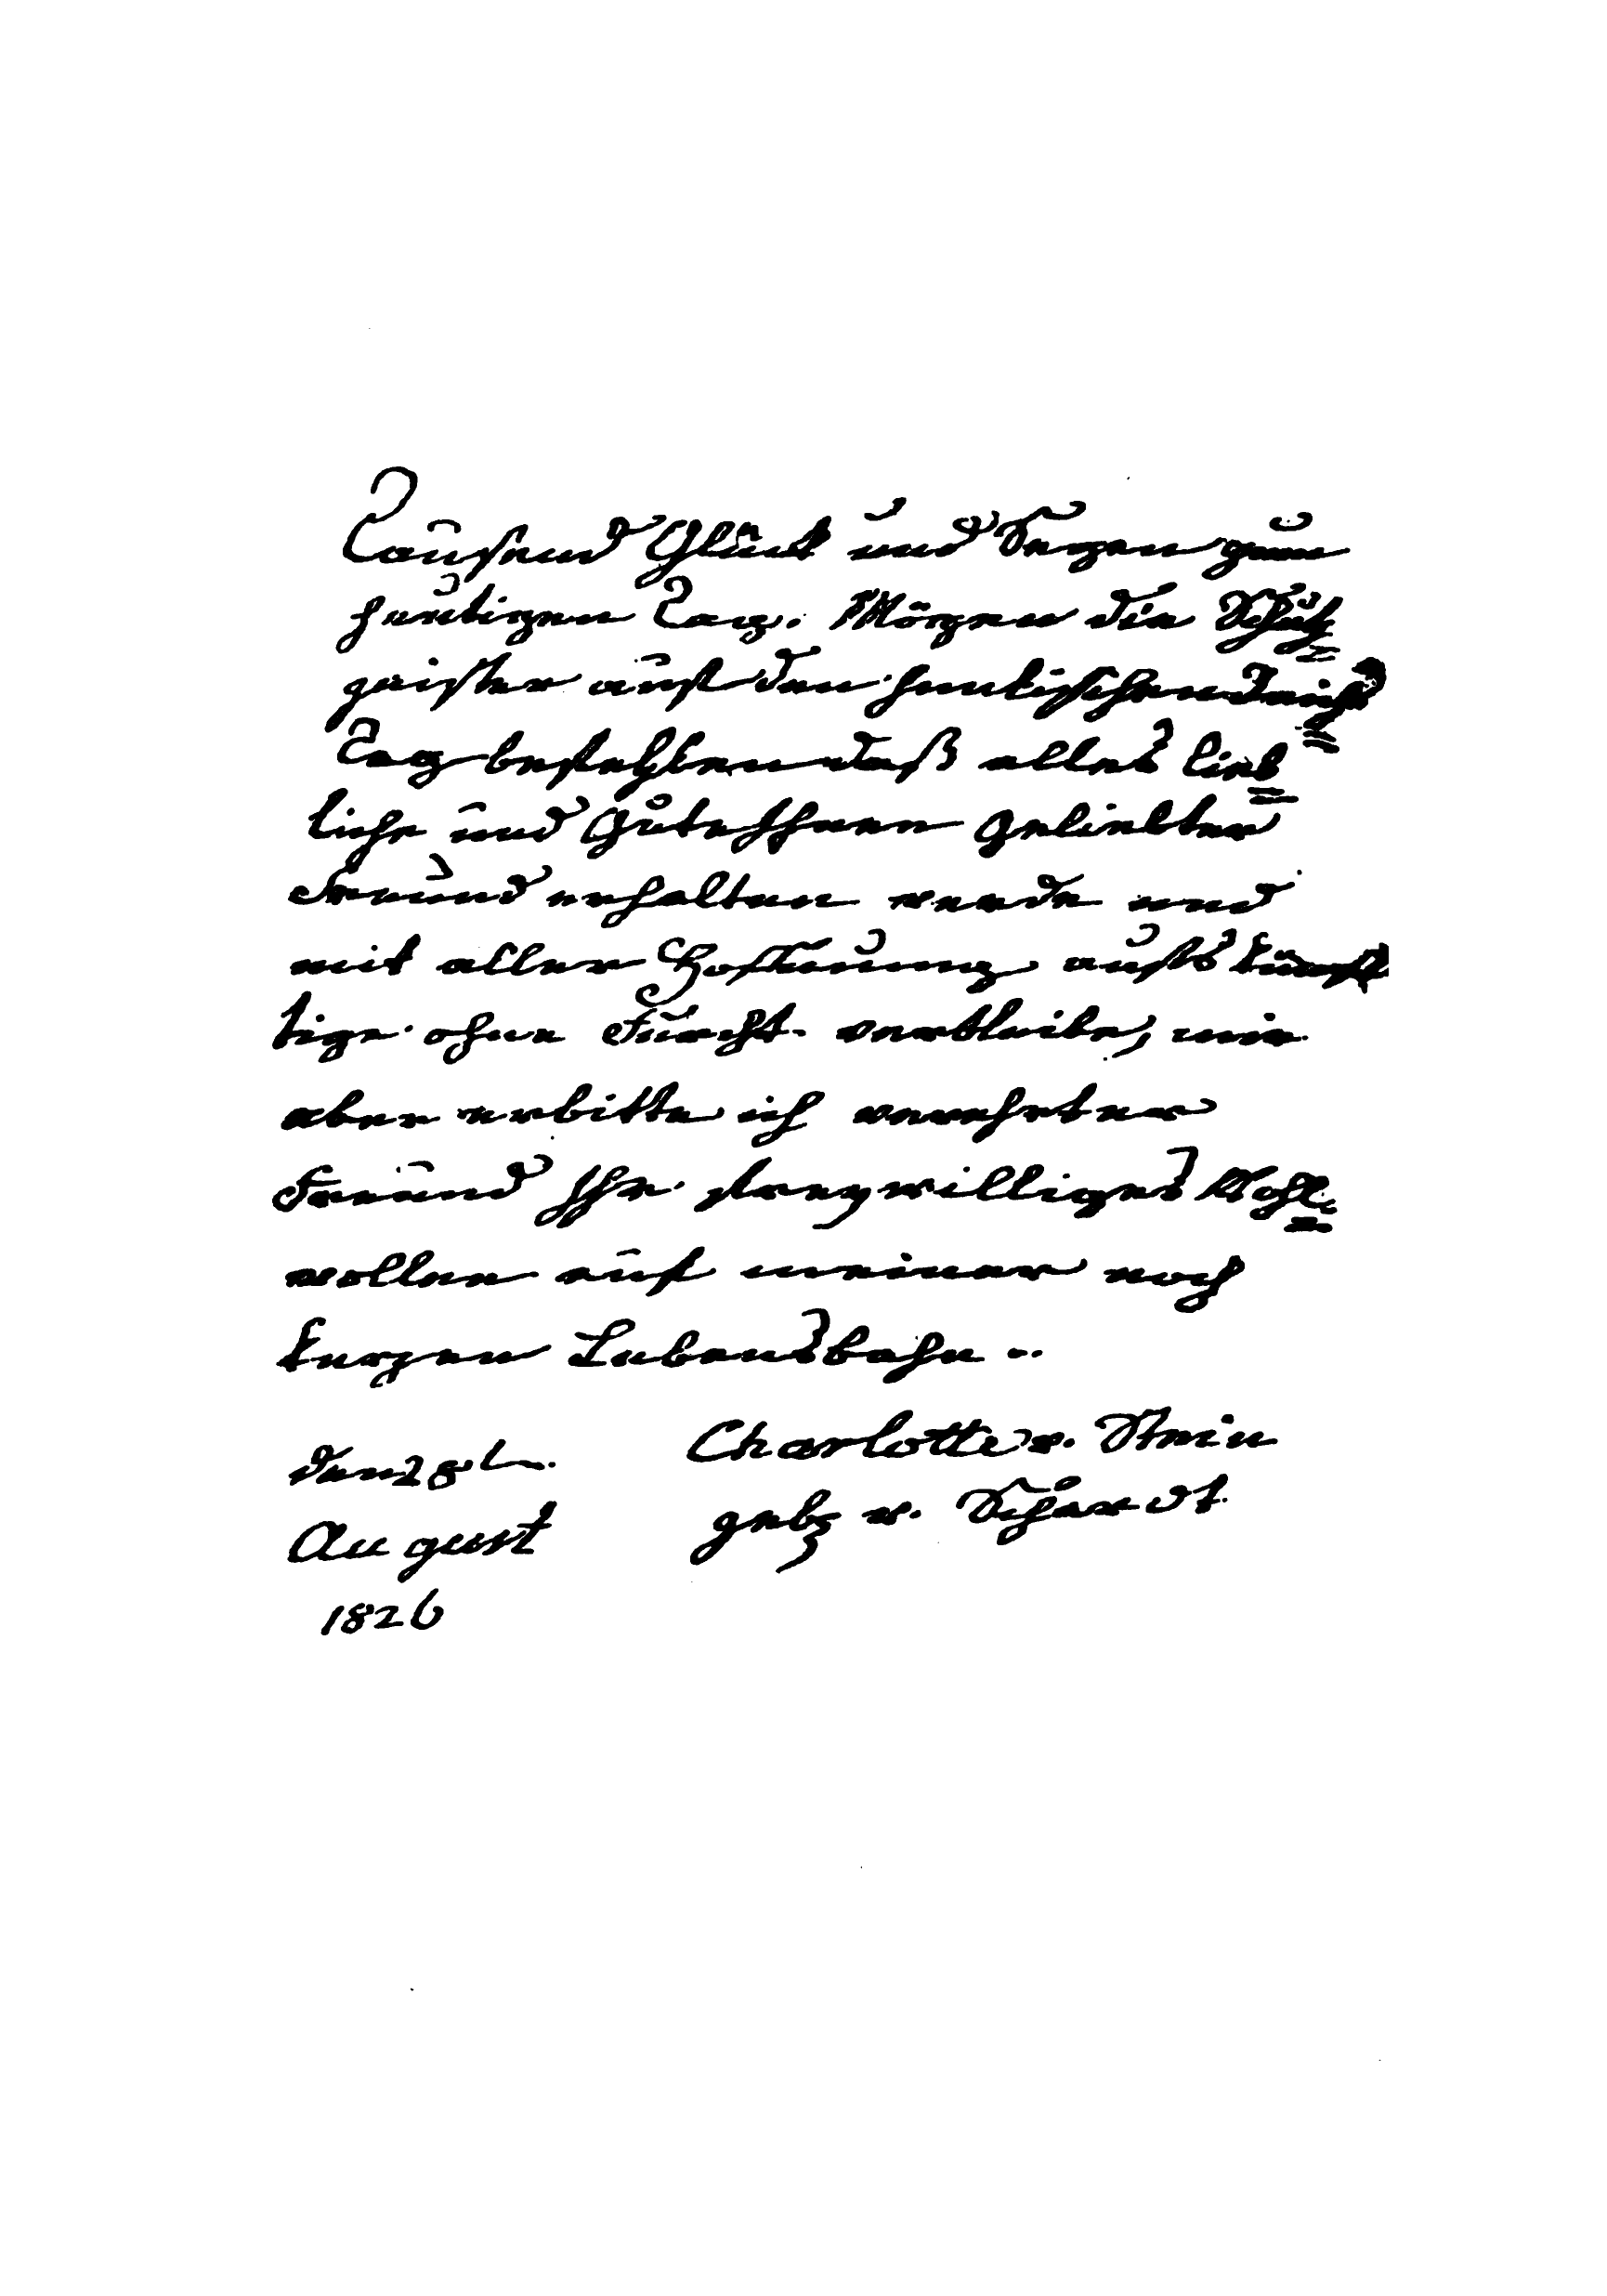 Tausend Glück und Segen zum
heutigen Tag. Mögen die Schutz=
geister auf den himlischen Reichs=
Tag befehlen daß alles lieb=
liche und Gute Ihnen geliebter
Freund erhalten werde und
mit aller Hoffnung aufs künf
tige ohne Furcht verbleibe, mir
aber erbitte ich verehrter
Freund Ihr freywilliges Wohl=
wollen auf meiner noch
kurzen Lebensbahn ..
den 28t. Charlotte v. Stein
August gebz v. Schardt
1826